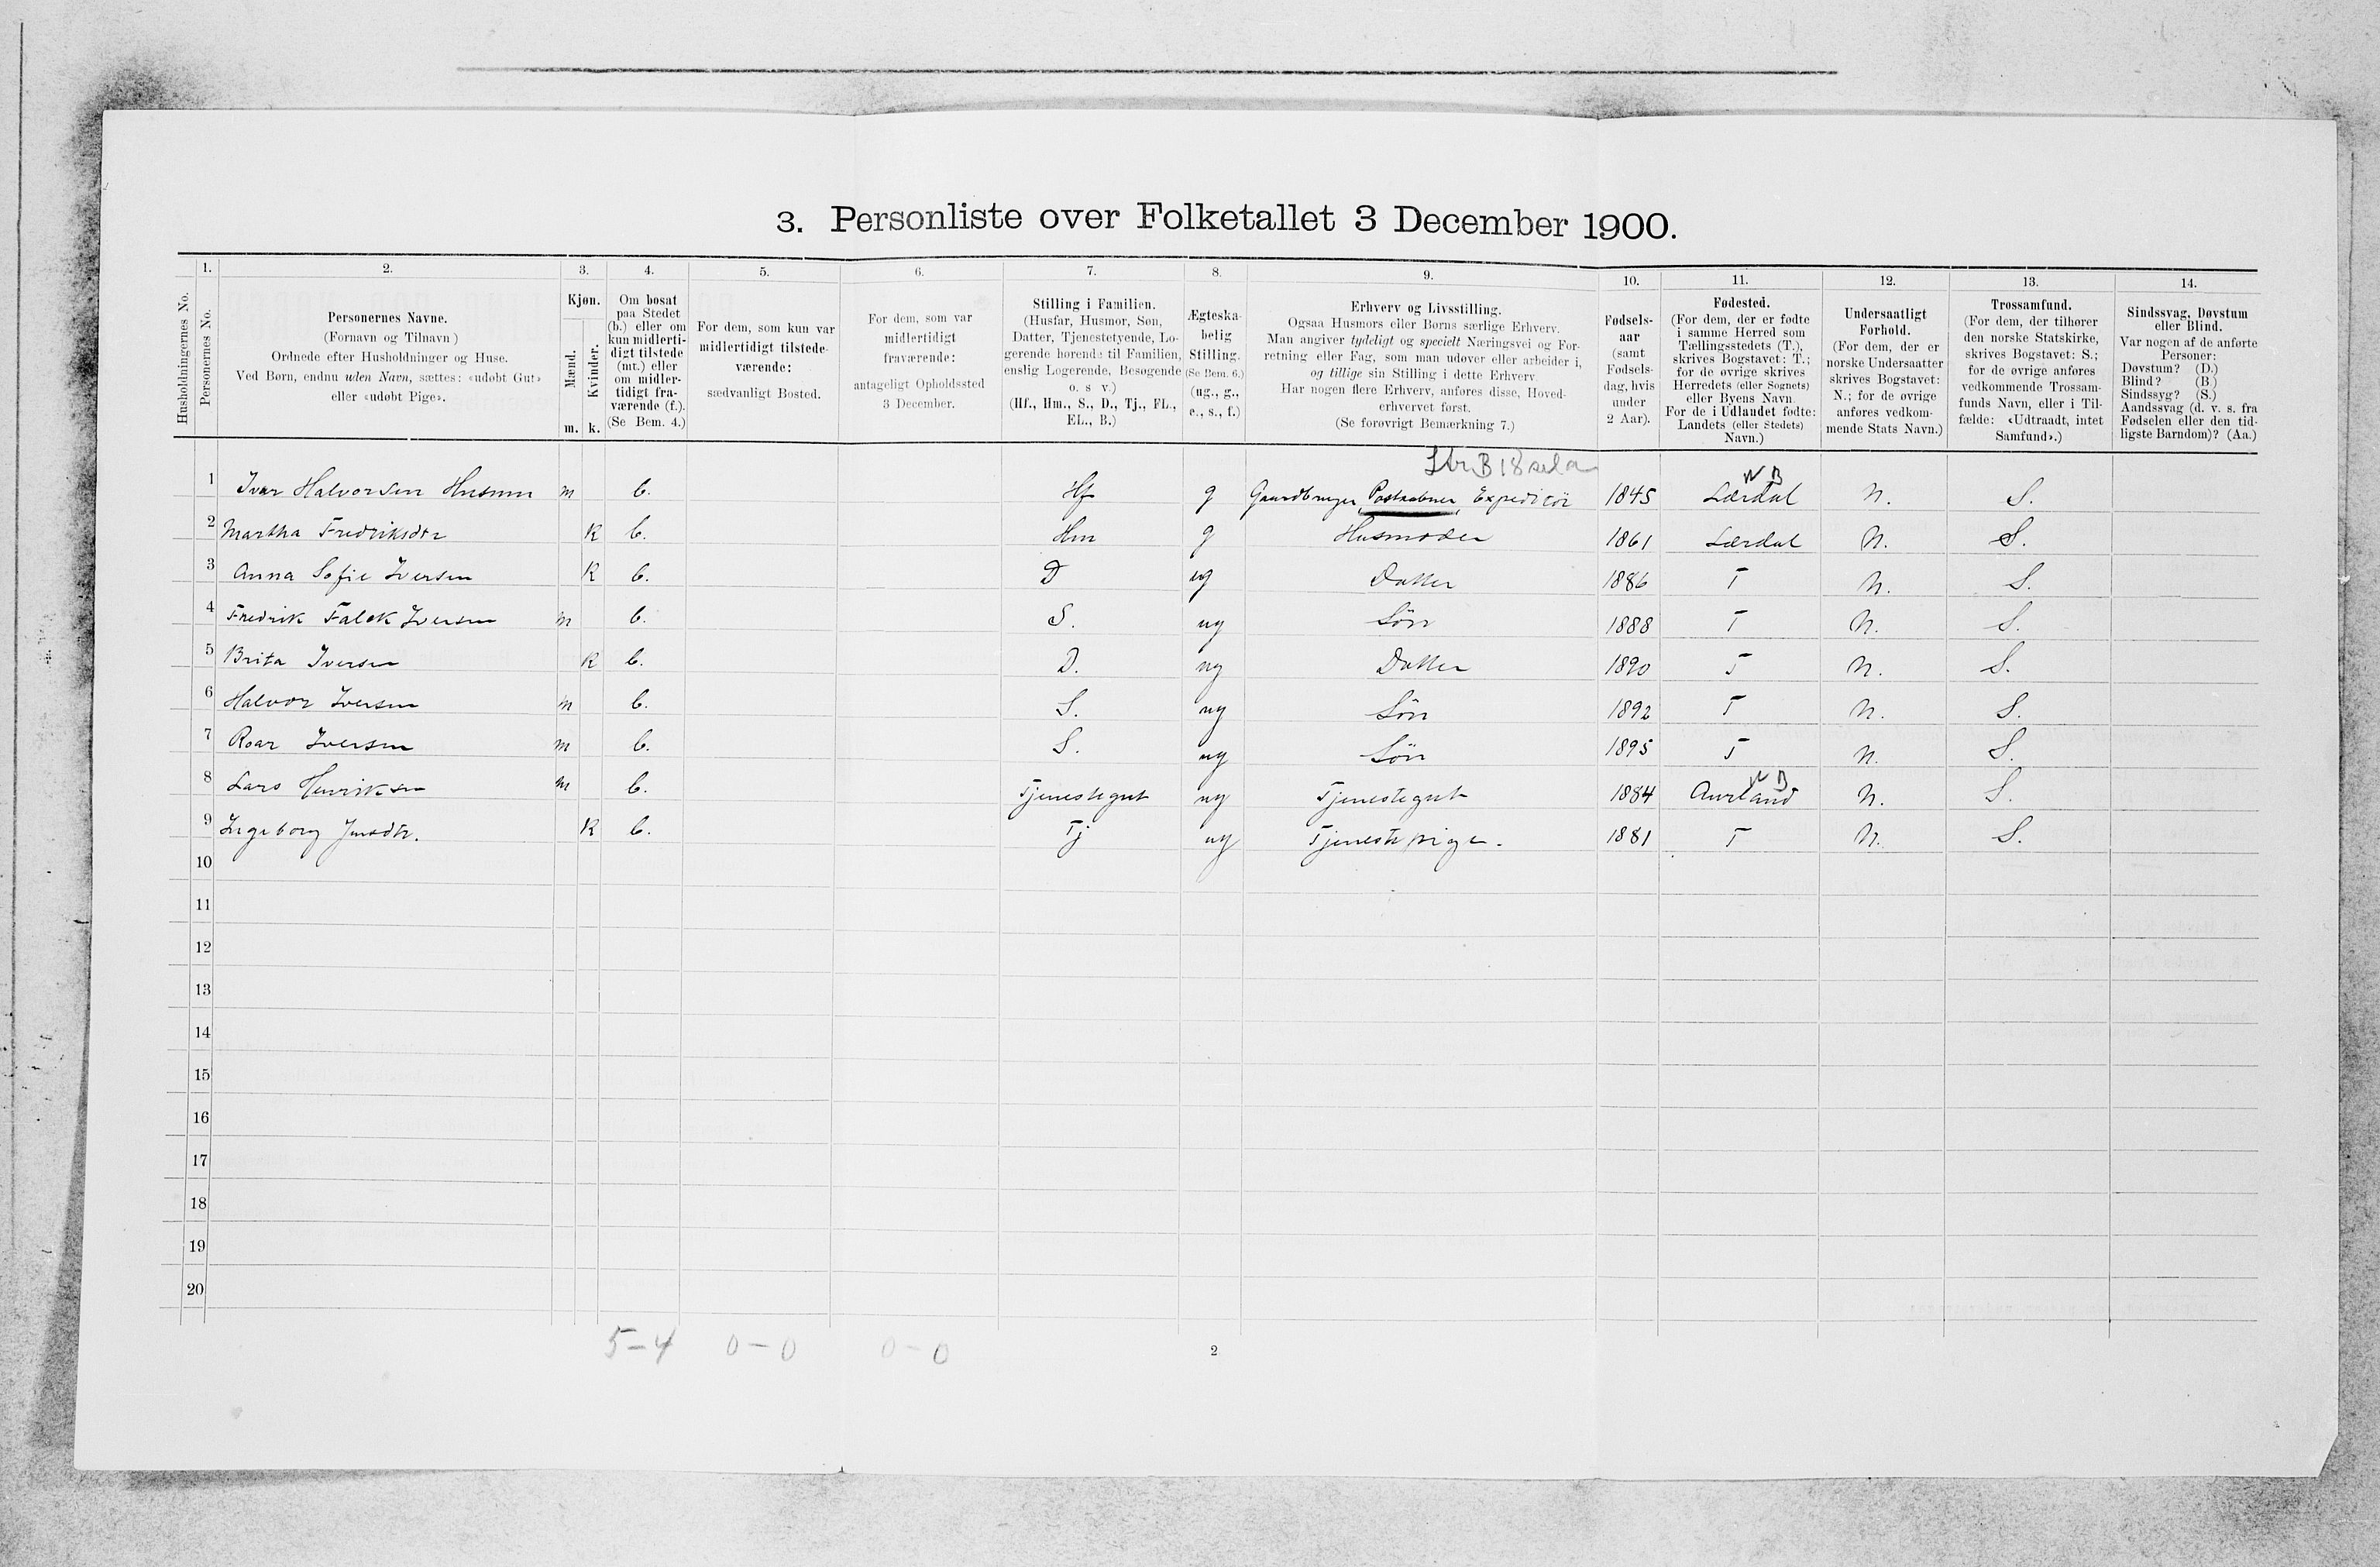 3. Personliste over Folketallet 3 December 1900.
Husholdningernes No.
1.
Personernes No.
2.
Personernes Navne.
(Fornavn og Tilnavn)
Ordnede efter Husholdninger og Huse.
Ved Børn, endnu uden Navn, sættes: «udøbt Gut»
eller «udøbt Pige».
3.
Kjøn.
Mænd.
Kvinder.
m. k.
4.
Om bosat
paa Stedet
(b.) eller om
kun midlerti-
digt tilstede
(mt.) eller
om midler-
tidigt fra-
værende (f.).
(Se Bem. 4.)
5.
For dem, som kun var
midlertidigt tilstede-
værende:
sædvanligt Bosted.
6.
For dem, som var
midlertidigt
fraværende:
antageligt Opholdssted
3 December.
7.
Stilling i Familien.
(Husfar, Husmor, Søn,
Datter, Tjenestetyende, Lo-
gerende hørende til Familien,
enslig Logerende, Besøgende
o. s v.)
(Hf., Hm., S., D., Tj., FL.,
EL., B.)
8.
Ægteska-
belig
Stilling.
(Se Bem. 6.)
(ug., g.,
e., s., f.)
9.
Erhverv og Livsstilling.
Ogsaa Husmors eller Børns særlige Erhverv.
Man angiver tydeligt og specielt Næringsvei og For-
retning eller Fag, som man udøver eller arbeider i,
og tillige sin Stilling i dette Erhverv.
Har nogen flere Erhverv, anføres disse, Hoved-
erhvervet først.
(Se forøvrigt Bemærkning 7.)
10.
Fødsels-
aar
(samt
Fødsels-
dag, hvis
under
2 Aar).
11.
Fødested.
(For dem, der er fødte
i samme Herred som
Tællingsstedets (T.),
skrives Bogstavet: T.;
for de øvrige skrives
Herredets (eller Sognets)
eller Byens Navn.
For de i Udlandet fødte:
Landets (eller Stedets)
Navn.)
12.
Undersaatligt
Forhold.
(For dem, der er
norske Undersaatter
skrives Bogstavet:
N.; for de øvrige
anføres vedkom-
mende Stats Navn.)
13.
Trossamfund.
(For dem, der tilhører
den norske Statskirke,
skrives Bogstavet: S.;
for de øvrige anføres
vedkommende Trossam-
funds Navn, eller i Til-
fælde: «Udtraadt, intet
Samfund».)
14.
Sindssvag, Døvstum
eller Blind.
Var nogen af de anførte
Personer:
Døvstum? (D.)
Blind? (B.)
Sindssyg? (S.)
Aandssvag (d. v. s. fra
Fødselen eller den tid-
ligste Barndom)? (Aa.)
1 Ivar Halvorsen Husum m b. Hf g Gaardbruger, Postaabner, Expeditör 1845 Lærdal N. S.
2 Martha Fredriksdtr K b. Hm g Husmoder 1861 Lærdal N. S.
3 Anna Sofie Iversen K b. D ug Datter 1886 T N. S.
4 Fredrik Falck Iversen m b. S. ug Sön 1888 T N. S.
5 Brita Iversen K b. D. ug Datter 1890 T N. S.
6 Halvor Iversen m b. S. ug Sön 1892 T N. S.
7 Roar Iversen m b. S. ug Sön 1895 T N. S.
8 Lars Henriksen m b. Tjenestegut ug Tjenestegut 1884 Aurland N. S.
9 Ingeborg K b. Tj ug Tjenestepige. 1881 T N. S.
10
11
12
13
14
15
16
17
18
19
20
5-4 0-0 0-0
2